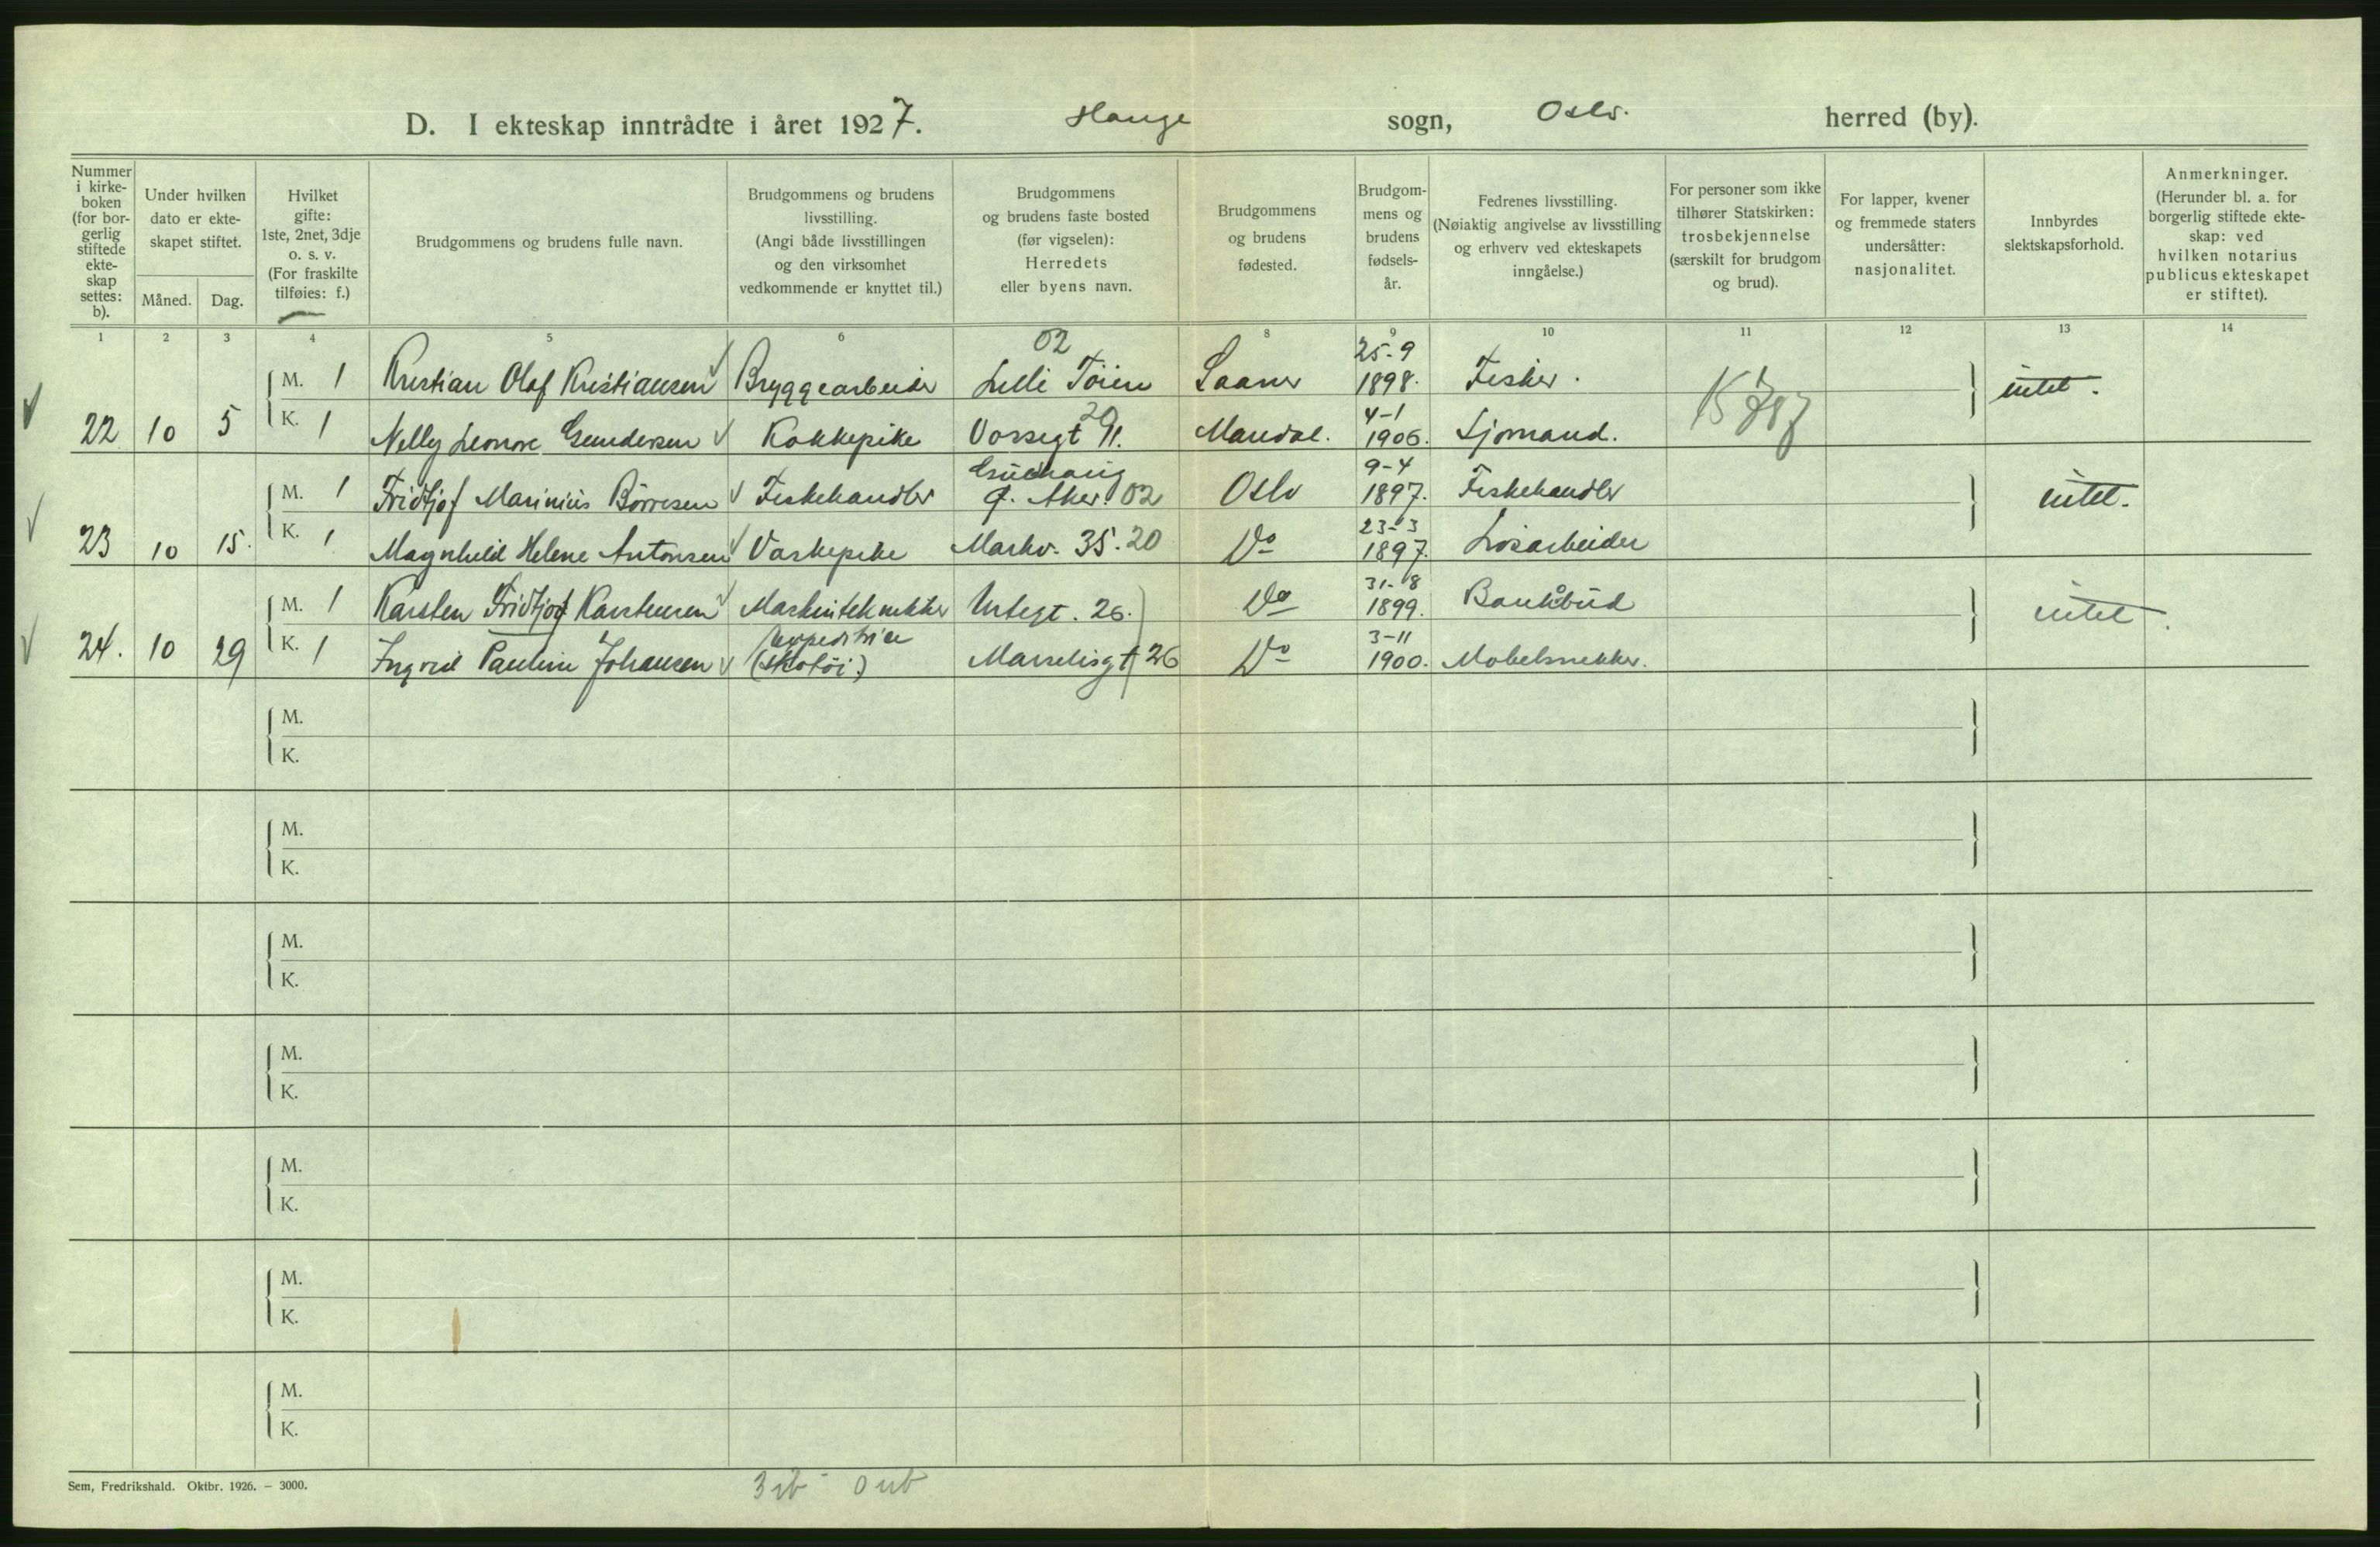 D. I ekteskap inntrådte i året 1927. Hauge sogn, Oslo. herred (by).
Nummer i kirkeboken (for borgerlig stiftede ekteskap settes: b).
Under hvilken dato er ekteskapet stiftet.
Måned. Dag.
Hvilket gifte: 1ste, 2net, 3dje o. s. v. (For fraskilte tilføies: f.)
Brudgommens og brudens fulle navn.
Brudgommens og brudens livsstilling. (Angi både livsstillingen og den virksomhet vedkommende er knyttet til.)
Brudgommens og brudens faste bosted (før vigselen): Herredets eller byens navn.
Brudgommens og brudens fødested.
Brudgommens og brudens fødselsår.
Fedrenes livsstilling. (Nøiaktig angivelse av livsstilling og erhverv ved ekteskapets inngåelse.)
For personer som ikke tilhører Statskirken: trosbekjennelse (særskilt for brudgom og brud).
For lapper, kvener og fremmede staters undersåtter: nasjonalitet.
Innbyrdes slektskapsforhold.
Anmerkninger. (Herunder bl. a. for borgerlig stiftede ekteskap: ved hvilken notarius publicus ekteskapet er stiftet).
1 2 3 4 5 6 8 9 10 11 12 13 14
02 25-9
M. 1 Kristian Olaf Kristiansen Bryggearbeider Lille Töien Saaner 1898. Fisker. intet.
20 4-1
22 10 5 K. 1 Nelly Leonore Gundersen Kokkepike Vossegt 91. Mandal. 1906. Sjømand.
9-4
M. 1 Fridtjof Marinius Börresen Fiskehandler Ø. Aker. 02 Oslo 1897. Fiskehandler intet.
23-3
23 10 15. K. 1 Magnhild Helene Antonsen Vaskepike Markv. 35. 20 Do 1897. Løsarbeider
31-8
M. 1 Karsten Fridtjof Karstensen Maskintekniker Urtegt. 26. Do 1899. Bankbud intet.
Expeditrice 3-11
24. 10 29 K. 1 Ingrid Pauline Johansen (skotöi.) Marselisgt 26 Do 1900. Møbelsnekker.
M.
K.
M.
K.
M.
K.
M.
K.
M.
K.
M.
K.
M.
K.
Sem, Fredrikshald. Oktbr. 1926. – 3000.
3 ib - 0 ub